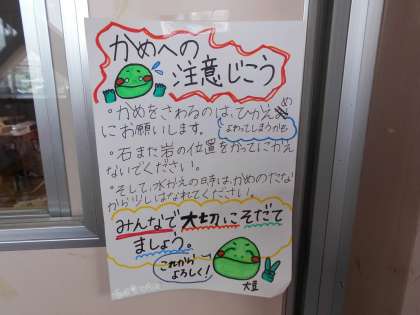 かめへの
注意じこう
・かめをさわるのは、ひかえめ
にお願いします。
よわってしまうかも
・石また岩の位置をかってにかえ
ないでください。
・そして、水がえの時は、かめのたな
から少しはなれてください。
みんなで大切にそだて
ましょう。
これから
よろしく!
大豆